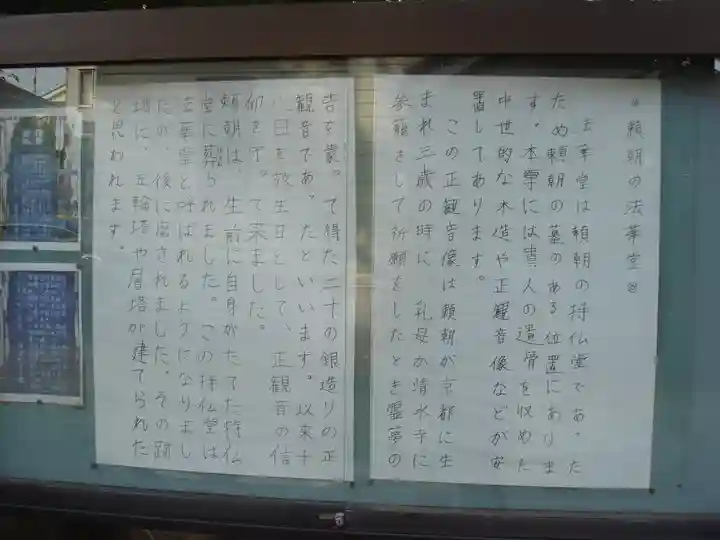 ◎頼朝の法華堂◎
法華堂は頼朝の持仏堂であった
ため頼朝の墓のある位置にありま
す。本堂には貴人の遺骨を収めた
中世的な木造や正観音像などが安
置してあります。
この正観音像は頼朝が京都に生
まれ三歳の時に、乳母が清水寺に
参籠をして祈願をしたとき霊夢の
告を蒙って得た二寸の銀造りの正
観音であったといいます。以来十
八日を放生日として、正観音の信
仰を守って来ました。
頼朝は、生前に自身がたてた持仏
堂に葬られました。この持仏堂は
法華堂と呼ばれるようになりまし
たが、後に廃されました。その跡
地に、五輪塔や層塔が建てられた
と思われます。